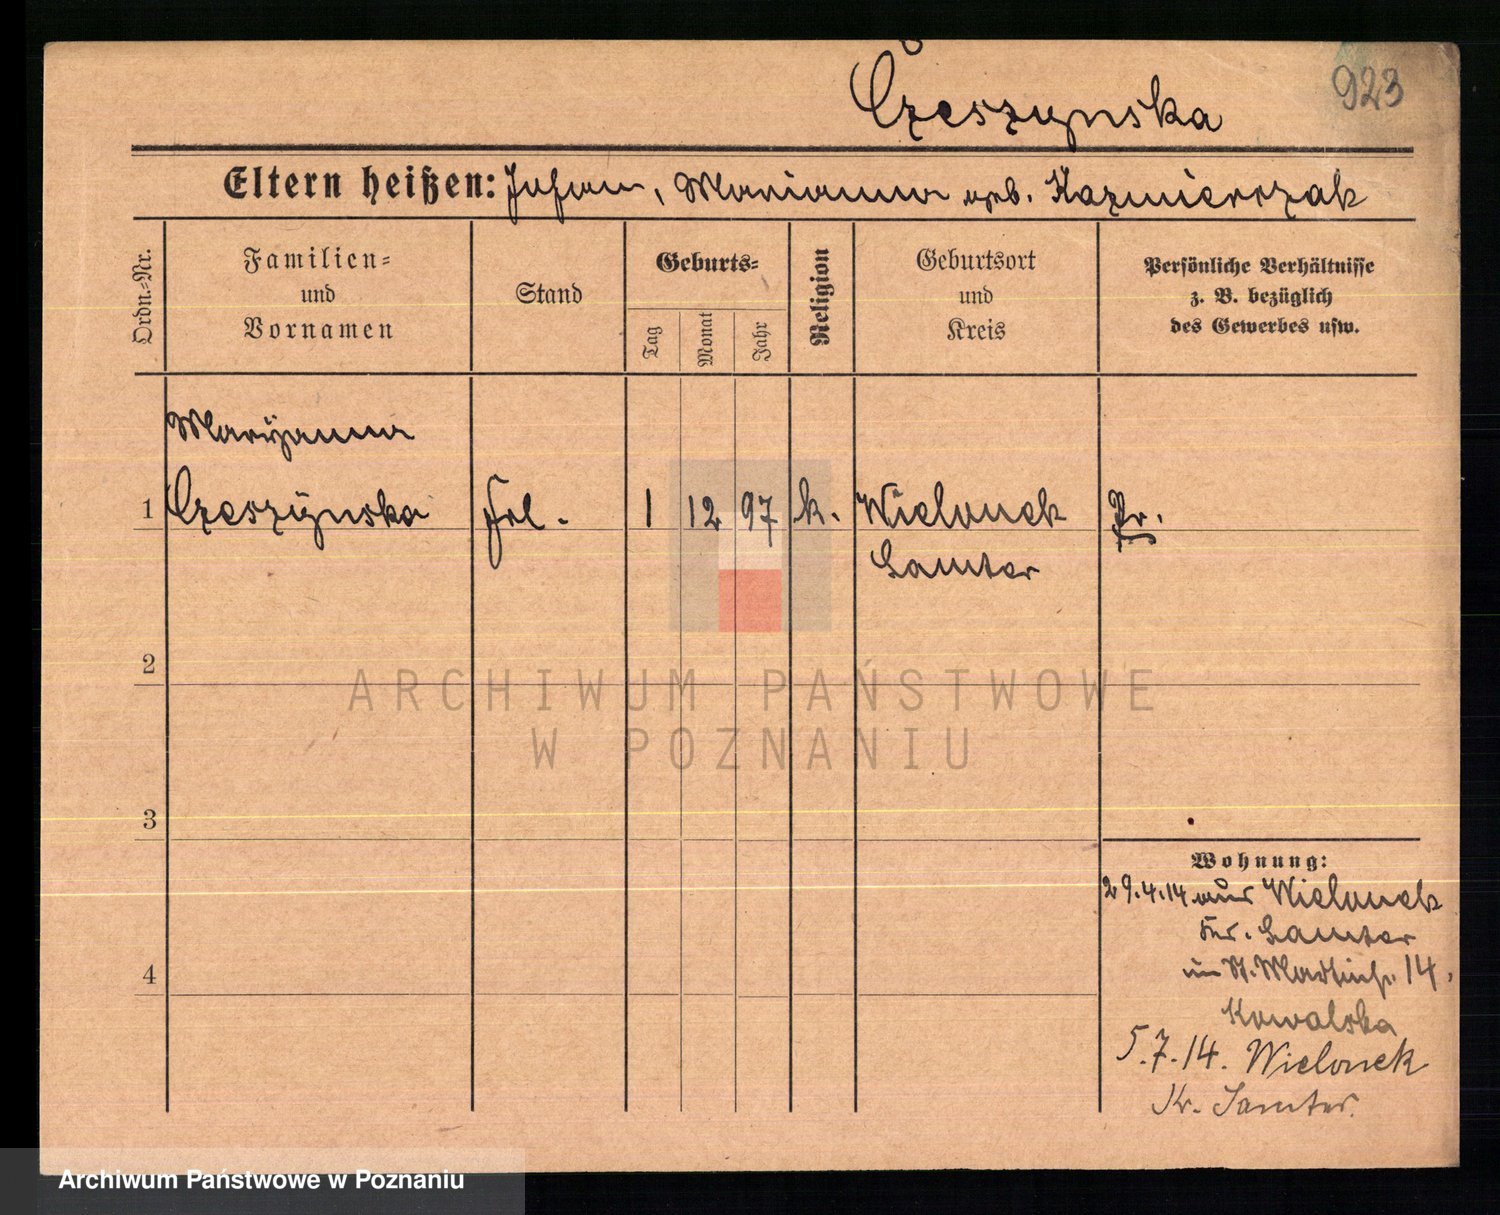 923
Czeszynska
Eltern heißen: Johann, Marianna geb. Kazmierczak
Ordn.-Nr.
Familien-
und
Vornamen
Stand
Geburts-
Tag
Monat
Jahr
Religion
Geburtsort
und
Kreis
Persönliche Verhältnisse
z. B. bezüglich
des Gewerbes usw.
Maryanna
1 Czeszynska Frl. 1 12 97 k. Wielonek Pr.
Samter
2
ARCHIWUM PAŃSTWOWE
W POZNANIU
3
Wohnung:
29.4.14 aus Wielonek
Kr. Samter
in St. Martinstr. 14.
4
Kowalska
5.7.14. Wielonek
Kr. Samter.
Archiwum Państwowe w Poznaniu